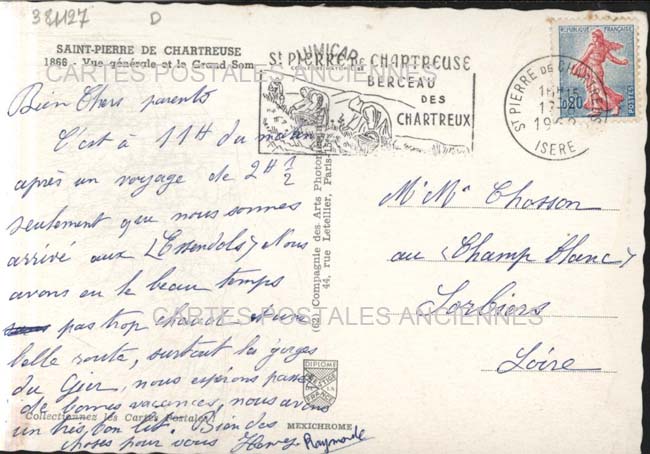 381127 D
SAINT-PIERRE DE CHARTREUSE
1866 - Vue générale et le Grand Som
CARTES POSTALES ANCIENNES
LUMICAP
St PIERRE DE CHARTREUSE
BERCEAU
DES
CHARTREUX
St PIERRE DE CHARTREUSE
16H15
17
196
ISERE
REPUBLIQUE FRANÇAISE
0,20
POSTES
Bien Chers parents
C'est à 11H du matin
après un voyage de 2H 1/2
seulement que nous sommes
arrivé aux (Essendols) Nous
avons eu le beau temps
pas trop chaud et une
belle route, surtout les gorges
du Gier, nous espérons passer
de bonnes vacances, nous avons
un très bon lit. Bien des
choses pour vous Raymonde
Mr Me Chosson
au (Champ Blanc)
Sorbiers
Loire
(62) Compagnie des Arts Photomécaniques
44, rue Letellier, Paris-15
CARTES POSTALES ANCIENNES
DIPLOME
PRESTIGE
DE LA
FRANCE
Collectionnez les Cartes Postales !
MEXICHROME